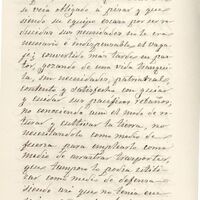 se veía obligado á pasar y que
siendo su equipo escaso por ser re-
ducidas sus necesidades no le era
necesario é indispensable el baga-
je; convertido mas tarde en pas-
tor gozando de una vida tranqui-
la, sin necesidades, patriarcal
contento y satisfecho con guiar
y cuidar sus pacíficos rebaños,
no conociendo aun el modo de ro-
turar y cultivar la tierra, no
necesitandolo como medio de
fuerza para emplearlo como
medio de arrastrar transportes
que tampoco le podia utili-
zar como medio de defensa
siendo asi que no tenia ene-